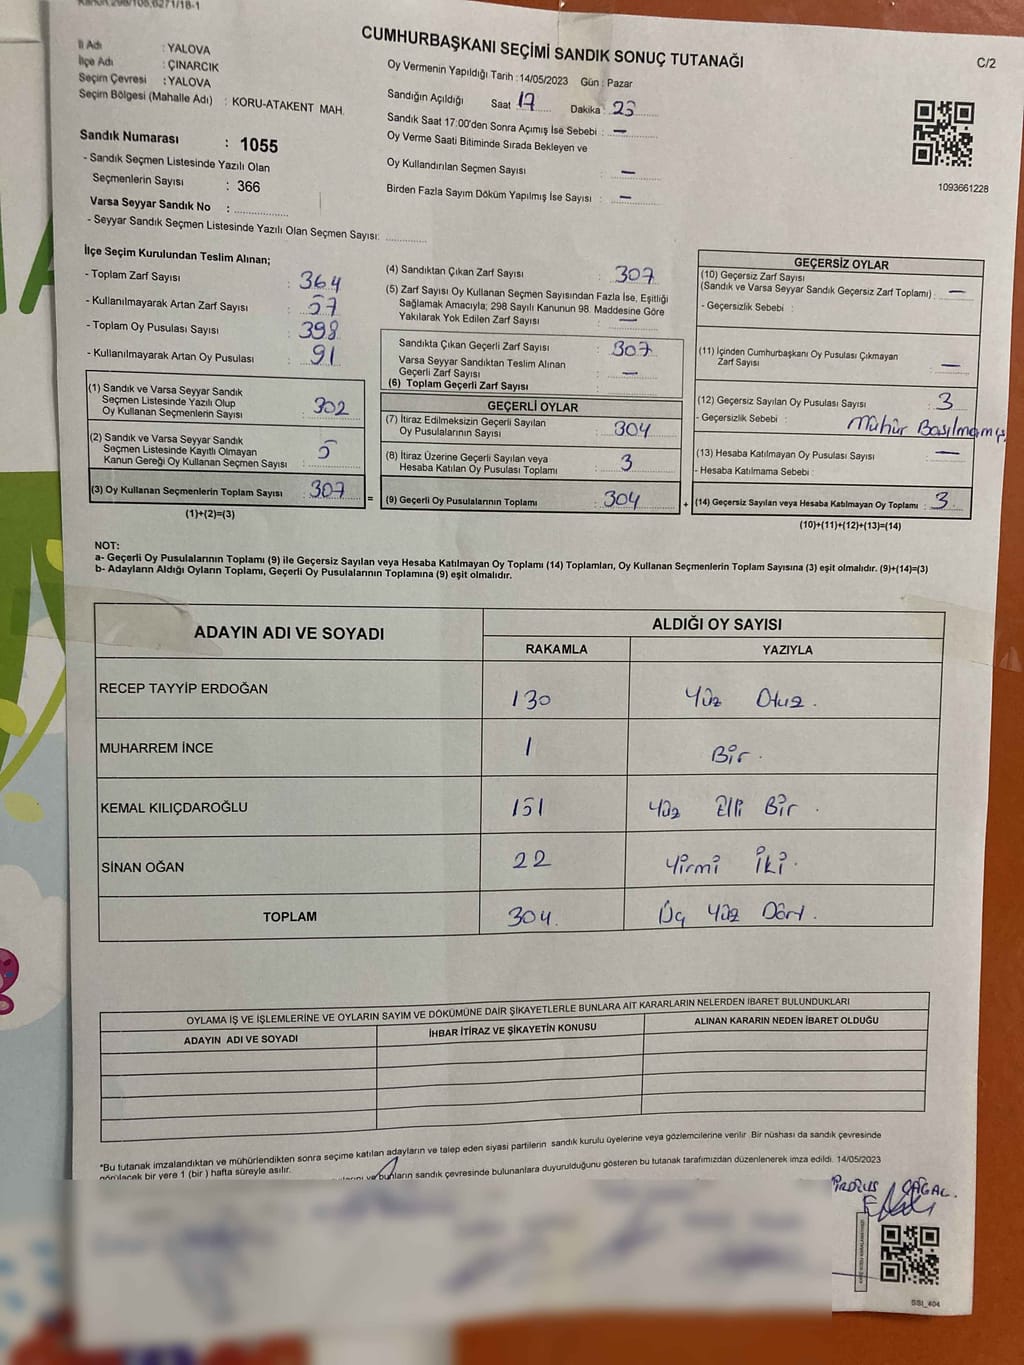 Kanun:298/105,6271/18-1
CUMHURBAŞKANI SEÇİMİ SANDIK SONUÇ TUTANAĞI
C/2
İl Adı : YALOVA
İlçe Adı : ÇINARCIK
Seçim Çevresi : YALOVA
Seçim Bölgesi (Mahalle Adı) : KORU-ATAKENT MAH.
Oy Vermenin Yapıldığı Tarih : 14/05/2023 Gün : Pazar
Sandığın Açıldığı Saat 17 Dakika : 23
Sandık Saat 17:00'den Sonra Açımış İse Sebebi : —
Oy Verme Saati Bitiminde Sırada Bekleyen ve
Oy Kullandırılan Seçmen Sayısı : —
Birden Fazla Sayım Döküm Yapılmış İse Sayısı : —
1093661228
Sandık Numarası : 1055
- Sandık Seçmen Listesinde Yazılı Olan
Seçmenlerin Sayısı : 366
Varsa Seyyar Sandık No : ................
- Seyyar Sandık Seçmen Listesinde Yazılı Olan Seçmen Sayısı: ............
İlçe Seçim Kurulundan Teslim Alınan;
- Toplam Zarf Sayısı : 364
- Kullanılmayarak Artan Zarf Sayısı : 57
- Toplam Oy Pusulası Sayısı : 398
- Kullanılmayarak Artan Oy Pusulası : 91
(1) Sandık ve Varsa Seyyar Sandık
Seçmen Listesinde Yazılı Olup
Oy Kullanan Seçmenlerin Sayısı : 302
(2) Sandık ve Varsa Seyyar Sandık
Seçmen Listesinde Kayıtlı Olmayan
Kanun Gereği Oy Kullanan Seçmen Sayısı : 5
(3) Oy Kullanan Seçmenlerin Toplam Sayısı : 307
(1)+(2)=(3)
=
(4) Sandıktan Çıkan Zarf Sayısı : 307
(5) Zarf Sayısı Oy Kullanan Seçmen Sayısından Fazla İse, Eşitliği
Sağlamak Amacıyla; 298 Sayılı Kanunun 98. Maddesine Göre
Yakılarak Yok Edilen Zarf Sayısı : —
Sandıkta Çıkan Geçerli Zarf Sayısı : 307
Varsa Seyyar Sandıktan Teslim Alınan
Geçerli Zarf Sayısı : —
(6) Toplam Geçerli Zarf Sayısı :
GEÇERLİ OYLAR
(7) İtiraz Edilmeksizin Geçerli Sayılan
Oy Pusulalarının Sayısı : 304
(8) İtiraz Üzerine Geçerli Sayılan veya
Hesaba Katılan Oy Pusulası Toplamı : 3
(9) Geçerli Oy Pusulalarının Toplamı : 304
+
GEÇERSİZ OYLAR
(10) Geçersiz Zarf Sayısı
(Sandık ve Varsa Seyyar Sandık Geçersiz Zarf Toplamı) : —
- Geçersizlik Sebebi :
(11) İçinden Cumhurbaşkanı Oy Pusulası Çıkmayan
Zarf Sayısı : —
(12) Geçersiz Sayılan Oy Pusulası Sayısı : 3
- Geçersizlik Sebebi : Mühür Basılmamış
(13) Hesaba Katılmayan Oy Pusulası Sayısı : —
- Hesaba Katılmama Sebebi :
(14) Geçersiz Sayılan veya Hesaba Katılmayan Oy Toplamı : 3.
(10)+(11)+(12)+(13)=(14)
NOT:
a- Geçerli Oy Pusulalarının Toplamı (9) ile Geçersiz Sayılan veya Hesaba Katılmayan Oy Toplamı (14) Toplamları, Oy Kullanan Seçmenlerin Toplam Sayısına (3) eşit olmalıdır. (9)+(14)=(3)
b- Adayların Aldığı Oyların Toplamı, Geçerli Oy Pusulalarının Toplamına (9) eşit olmalıdır.
ADAYIN ADI VE SOYADI ALDIĞI OY SAYISI
RAKAMLA YAZIYLA
RECEP TAYYİP ERDOĞAN 130 Yüz Otuz.
MUHARREM İNCE 1 Bir.
KEMAL KILIÇDAROĞLU 151 Yüz Elli Bir.
SİNAN OĞAN 22 Yirmi İki.
TOPLAM 304. Üç Yüz Dört.
OYLAMA İŞ VE İŞLEMLERİNE VE OYLARIN SAYIM VE DÖKÜMÜNE DAİR ŞİKAYETLERLE BUNLARA AİT KARARLARIN NELERDEN İBARET BULUNDUKLARI
ADAYIN ADI VE SOYADI İHBAR İTİRAZ VE ŞİKAYETİN KONUSU ALINAN KARARIN NEDEN İBARET OLDUĞU
*Bu tutanak imzalandıktan ve mühürlendikten sonra seçime katılan adayların ve talep eden siyasi partilerin sandık kurulu üyelerine veya gözlemcilerine verilir. Bir nüshası da sandık çevresinde
görülecek bir yere 1 (bir) hafta süreyle asılır.
ve bunların sandık çevresinde bulunanlara duyurulduğunu gösteren bu tutanak tarafımızdan düzenlenerek imza edildi. 14/05/2023
SSI_404